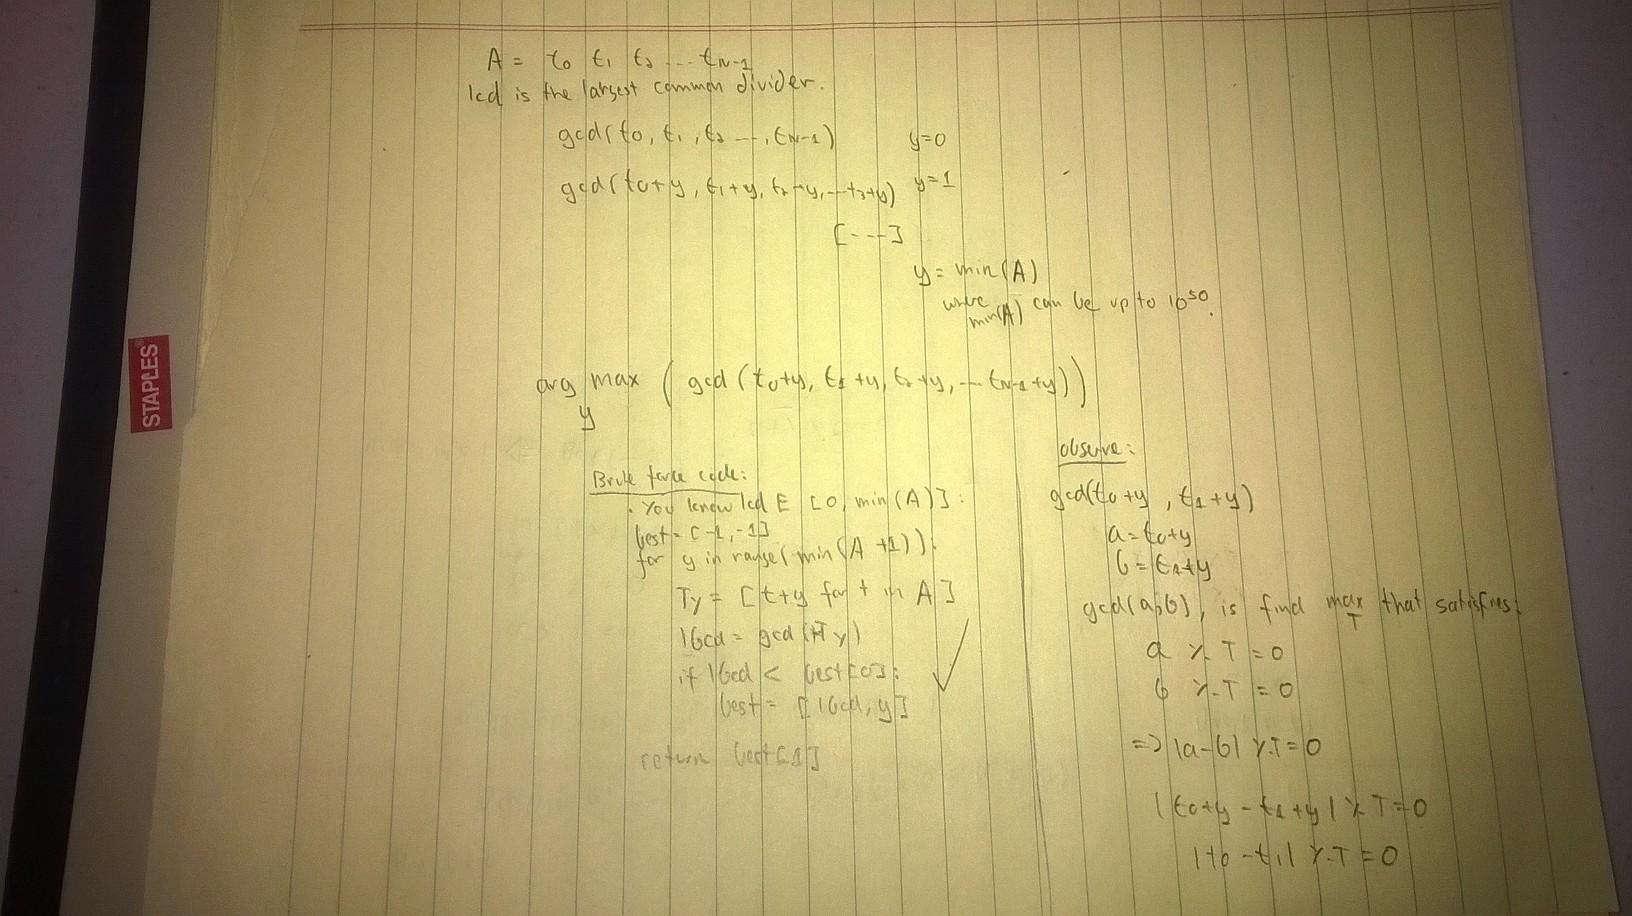 A = t0 t1 t2 ... tN-1
lcd is the largest common divider.
gcd(t0, t1, t2 ---, tN-1) y=0
gcd(t0+y, t1+y, t2+y, ---t3+y) y=1
[---]
y = min(A)
where min(A) can be up to 10^50.
arg max y ( gcd (t0+y, t1+y, t2+y, --- tN-1+y))
Brute force code:
. You know lcd E [0, min(A)]:
best = [-1,-1]
for y in range( min(A +1)):
Ty = [t+y for t in A]
lGcd = gcd( Ty)
if lGcd < best[0]:
best = [lGcd, y]
return best[1]
observe:
gcd(t0+y, t1+y)
a = t0+y
b = t1+y
gcd(a,b), is find max T that satisfies:
a % T = 0
b % T = 0
=> |a-b| % T = 0
|t0+y - t1+y| % T = 0
|t0 - t1| % T = 0
STAPLES